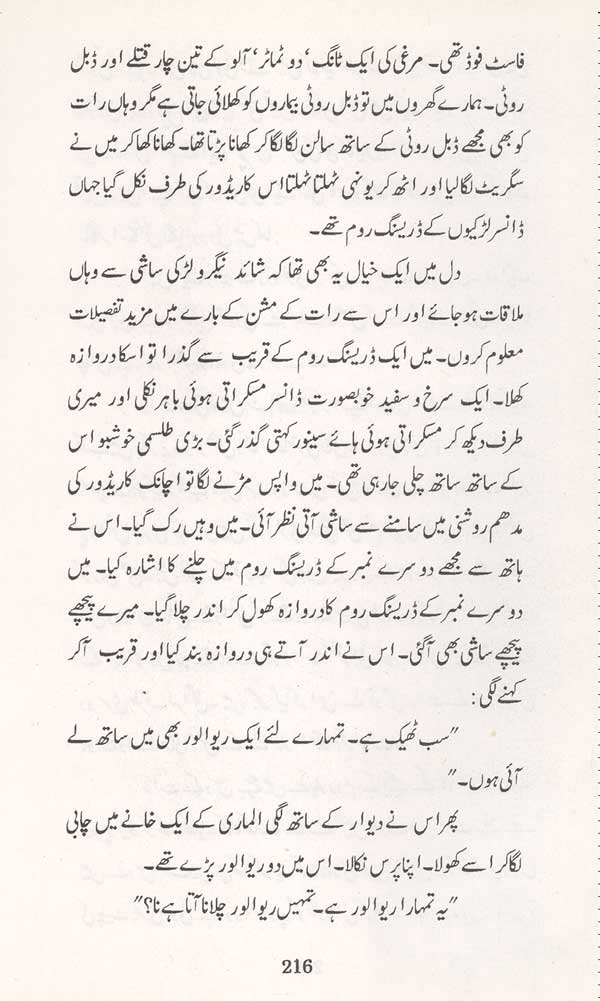 فاسٹ فوڈ تھی۔ مرغی کی ایک ٹانگ، دو ٹماٹر، آلو کے تین چار قتلے اور ڈبل
روٹی۔ ہمارے گھروں میں تو ڈبل روٹی بیماروں کو کھلائی جاتی ہے مگر وہاں رات
کو بھی مجھے ڈبل روٹی کے ساتھ سالن لگا لگا کر کھانا پڑتا تھا۔ کھانا کھا کر میں نے
سگریٹ لگا لیا اور اٹھ کر یونہی ٹہلتا ٹہلتا اس کاریڈور کی طرف نکل گیا جہاں
ڈانسر لڑکیوں کے ڈریسنگ روم تھے۔
دل میں ایک خیال یہ بھی تھا کہ شائد نیگرو لڑکی ساشی سے وہاں
ملاقات ہو جائے اور اس سے رات کے مشن کے بارے میں مزید تفصیلات
معلوم کروں۔ میں ایک ڈریسنگ روم کے قریب سے گذرا تو اسکا دروازہ
کھلا۔ ایک سرخ و سفید خوبصورت ڈانسر مسکراتی ہوئی باہر نکلی اور میری
طرف دیکھ کر مسکراتی ہوئی ہائے سینور کہتی گذر گئی۔ بڑی طلسمی خوشبو اس
کے ساتھ ساتھ چلی جا رہی تھی۔ میں واپس مڑنے لگا تو اچانک کاریڈور کی
مدھم روشنی میں سامنے سے ساشی آتی نظر آئی۔ میں وہیں رک گیا۔ اس نے
ہاتھ سے مجھے دوسرے نمبر کے ڈریسنگ روم میں چلنے کا اشارہ کیا۔ میں
دوسرے نمبر کے ڈریسنگ روم کا دروازہ کھول کر اندر چلا گیا۔ میرے پیچھے
پیچھے ساشی بھی آگئی۔ اس نے اندر آتے ہی دروازہ بند کیا اور قریب آکر
کہنے لگی:
"سب ٹھیک ہے۔ تمہارے لئے ایک ریوالور بھی میں ساتھ لے
آئی ہوں۔"
پھر اس نے دیوار کے ساتھ لگی الماری کے ایک خانے میں چابی
لگا کر اسے کھولا۔ اپنا پرس نکالا۔ اس میں دو ریوالور پڑے تھے۔
"یہ تمہارا ریوالور ہے۔ تمہیں ریوالور چلانا آتا ہے نا؟"
216